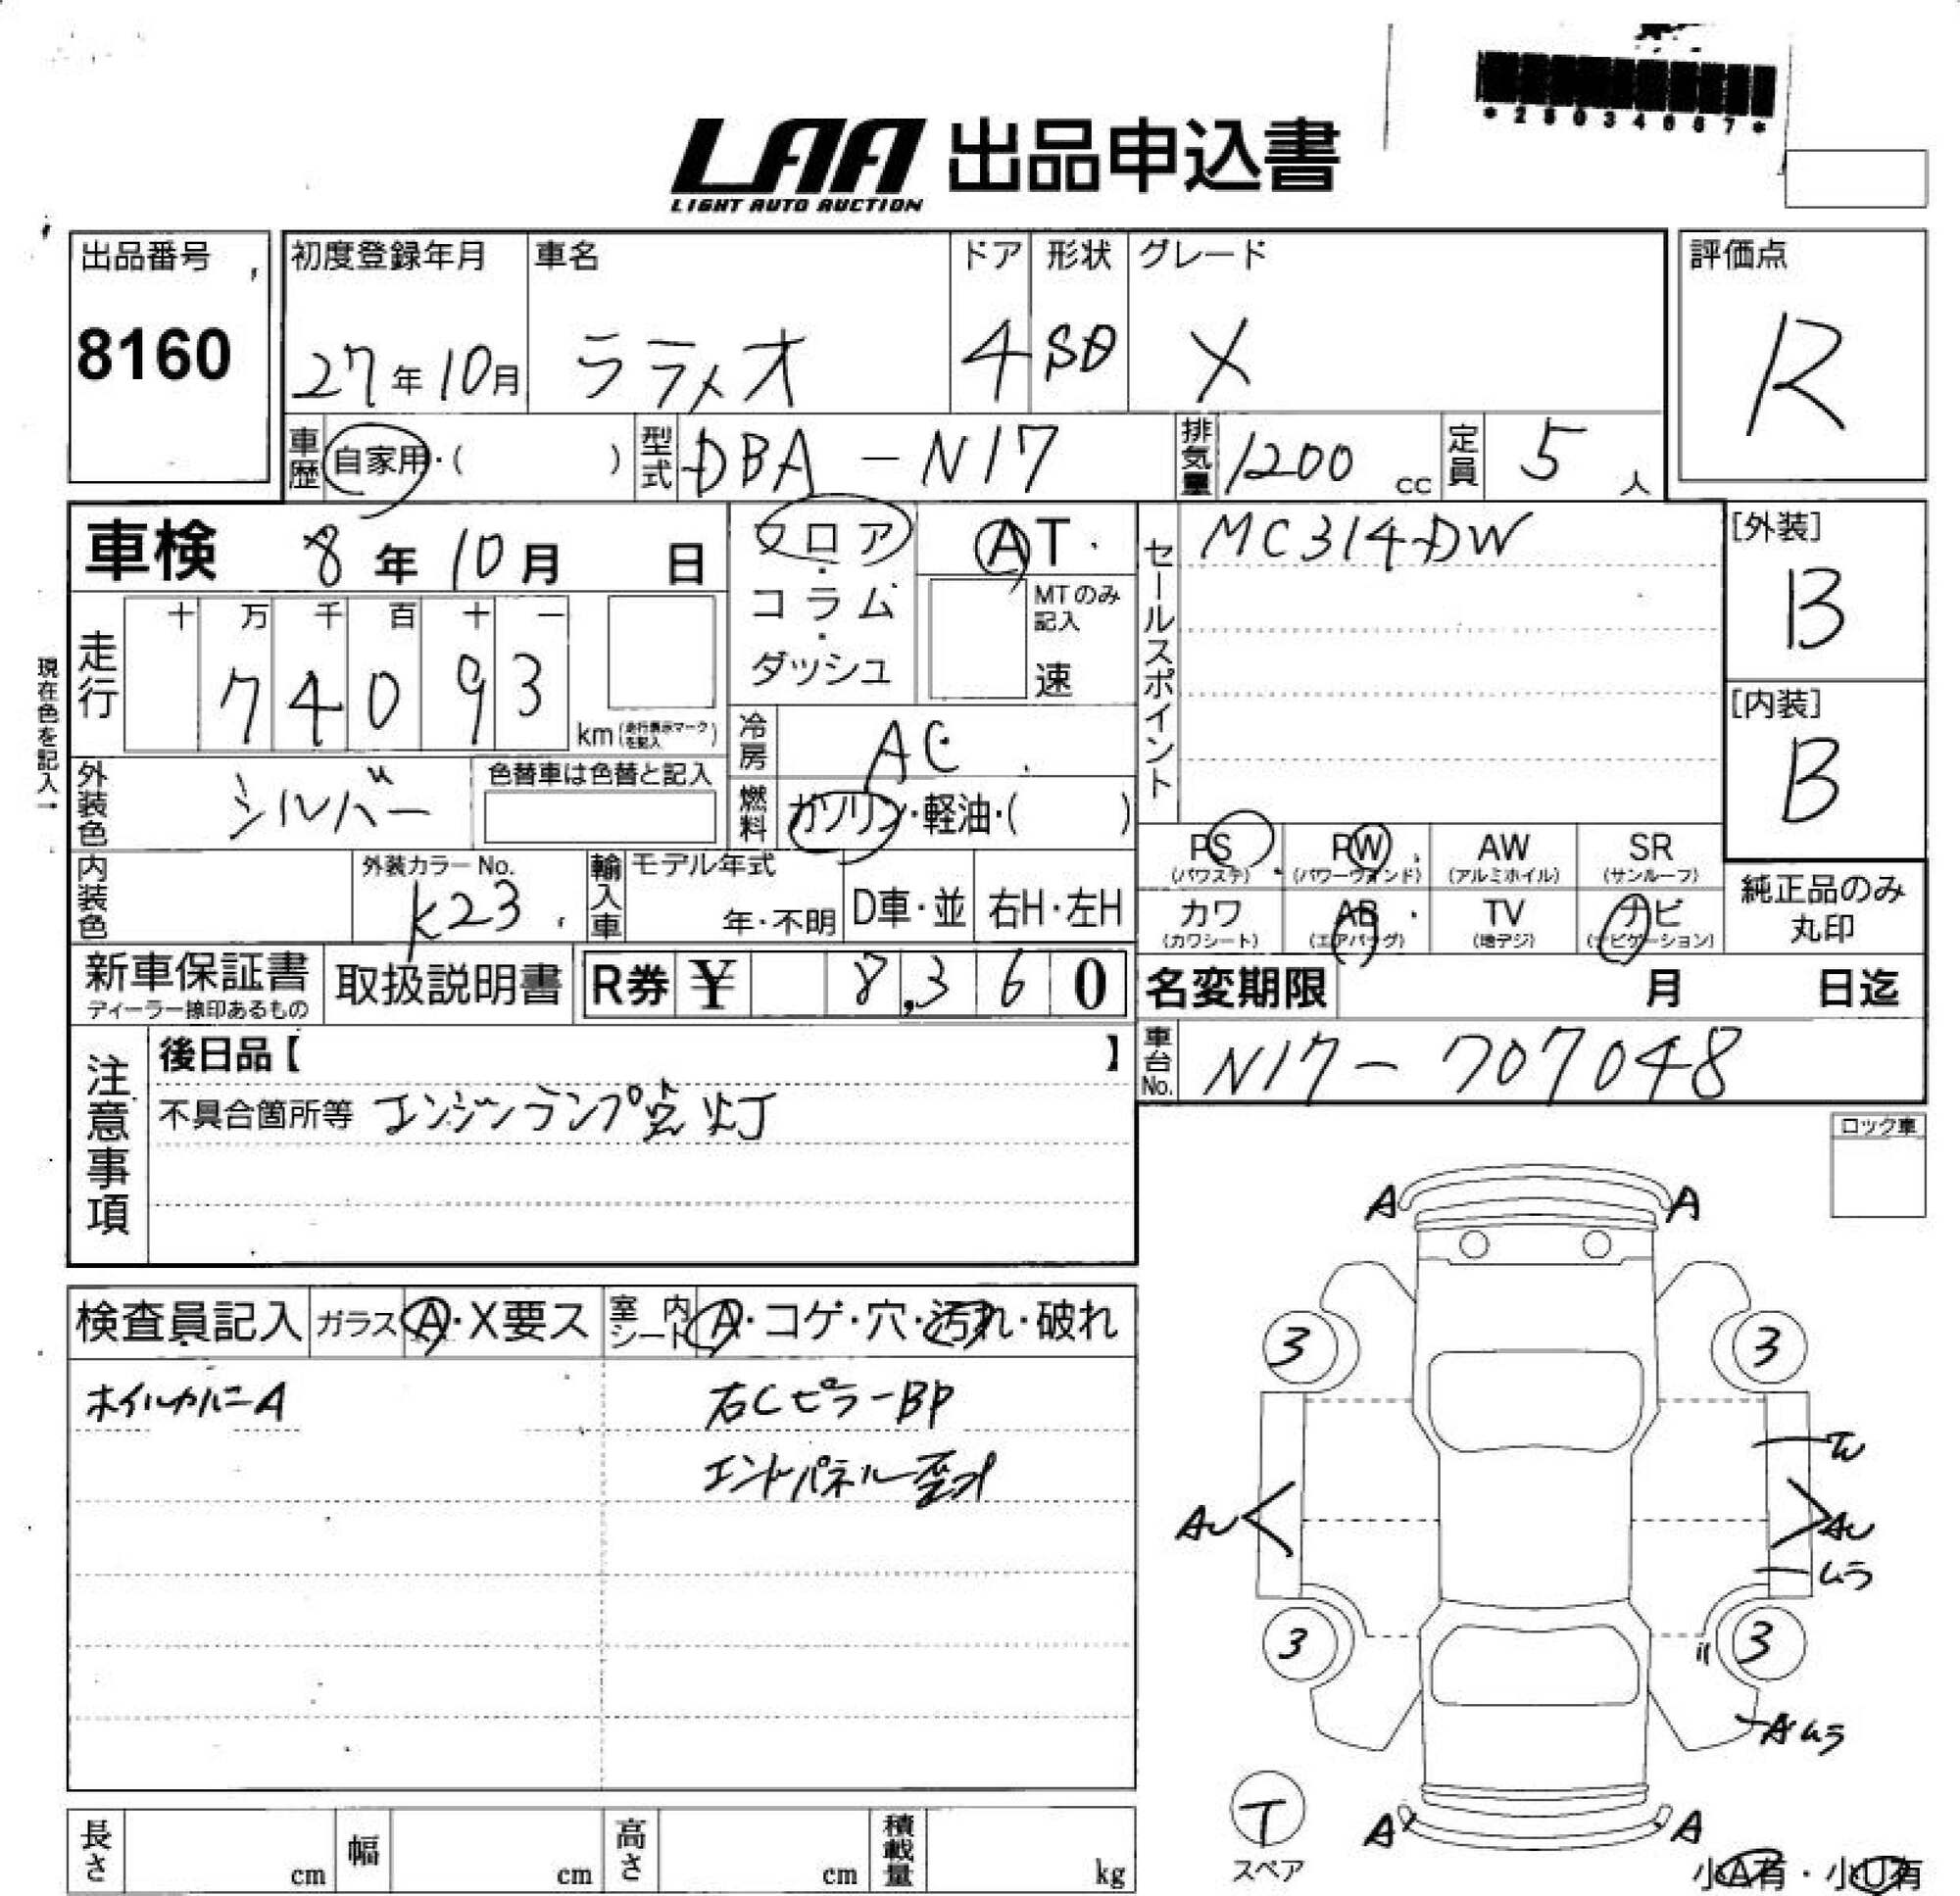 *28034667*
LAA 出品申込書
LIGHT AUTO AUCTION
出品番号
8160
初度登録年月 車名 ドア 形状 グレード
27年10月 ララメオ 4 SD X
評価点
R
車歴 自家用・( ) 型式 DBA-N17 排気量 1200 cc 定員 5 人
車検 8年10月 日
フロア・コラム・ダッシュ
AT
MTのみ記入
速
セールスポイント
MC314-DW
[外装]
B
[内装]
B
現在色を記入→
走行 十 万 千 百 十 一
7 4 0 9 3
km (走行表示マークを記入)
冷房 AC
外装色 シルバー 色替車は色替と記入
燃料 ガソリン・軽油・( )
PS (パワステ) PW (パワーウィンド) AW (アルミホイル) SR (サンルーフ)
カワ (カワシート) AB (エアバッグ) TV (地デジ) ナビ (ナビゲーション)
純正品のみ丸印
内装色 外装カラーNo. K23 輸入車 モデル年式 年・不明 D車・並 右H・左H
新車保証書 ディーラー捺印あるもの 取扱説明書 R券 ¥ 8,360
名変期限 月 日迄
車台No. N17-707048
注意事項
後日品【 】
不具合箇所等 エンジンランプ点灯
ロック車
検査員記入 ガラス A・X要ス 室内シート A・コゲ・穴・汚れ・破れ
ホイルカバーA
右CピラーBP
エンドパネル歪み
A A
3 3
AU AU
ムラ
3 3
Aムラ
T
スペア
A A
小A有・小U有
長さ cm 幅 cm 高さ cm 積載量 kg